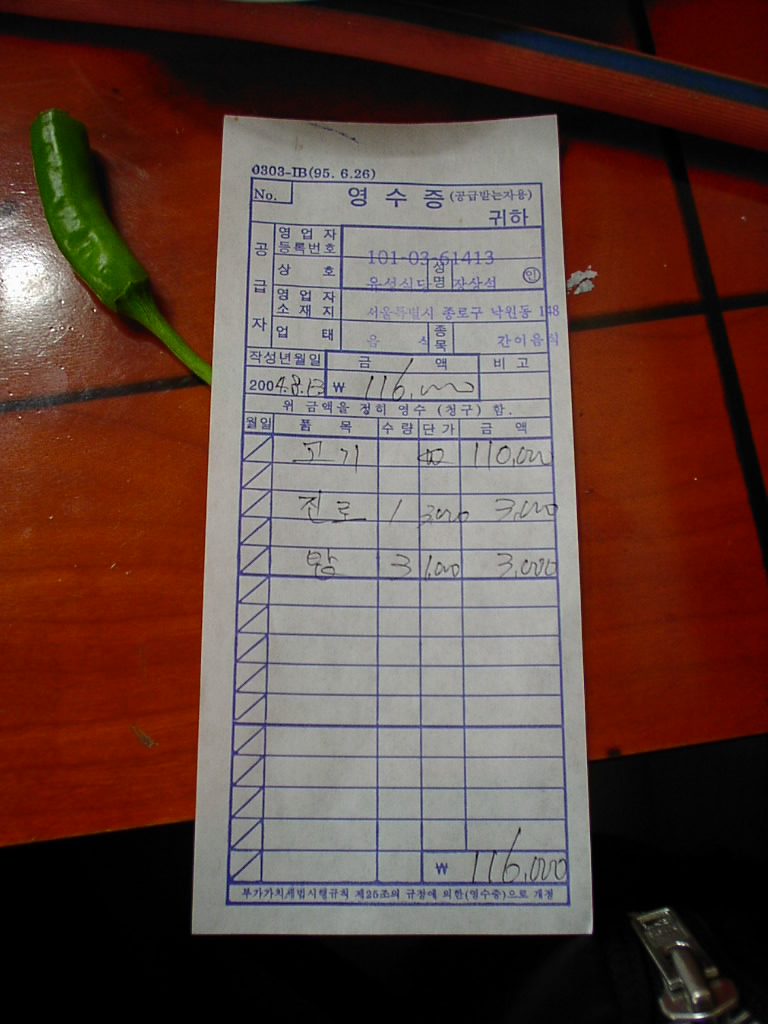 0303-IB(95. 6.26)
No. 영 수 증 (공급받는자용)
귀하
공급자
영업자등록번호 101-03-61413
상 호 유성식당 성명 장상선 인
영업자소재지 서울특별시 종로구 낙원동 148
업 태 음 식 종목 간이음식
작성년월일 금 액 비 고
2004.8.13 ₩ 116,000
위 금액을 정히 영수 (청구) 함.
월일 품 목 수량 단가 금 액
고기 110,000
진로 1 3,000 3,000
밥 3 1,000 3,000
₩ 116,000
부가가치세법시행규칙 제25조의 규정에 의한(영수증)으로 개정